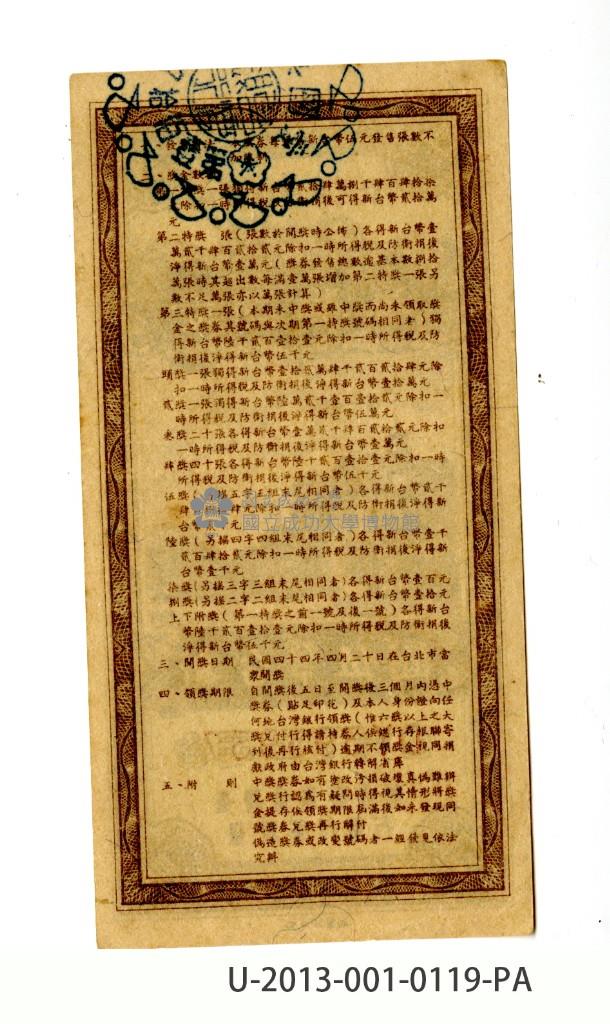 券每 新台幣伍元發售張數不
二、獎金數
一 獎一張獨得新台幣 貳拾肆萬捌千肆百肆拾柒
除扣一時所得稅及防衛捐後可得新台幣貳拾萬
元
第二特獎 張(張數於開獎時公佈)各得新台幣壹
萬貳千肆百貳拾貳元除扣一時所得稅及防衛捐後
淨得新台幣壹萬元(獎券發售總數逾基本數捌拾
萬張時其超出數每滿壹萬張增加第二特獎一張另
數不足萬張亦以萬張計算)
第三特獎一張(本期未中獎或雖中獎而尚未領取獎
金之獎券其號碼與次期第一特獎號碼相同者)獨
得新台幣陸千貳百壹拾壹元除扣一時所得稅及防
衛捐後淨得新台幣伍千元
頭獎一張獨得新台幣壹拾貳萬肆千貳百貳拾肆元除
扣一時所得稅及防衛捐後淨得新台幣壹拾萬元
貳獎一張獨得新台幣陸萬貳千壹百壹拾貳元除扣一
時所得稅及防衛捐後淨得新台幣伍萬元
叁獎二十張各得新台幣壹萬貳千肆百貳拾貳元除扣
一時所得稅及防衛捐後淨得新台幣壹萬元
肆獎四十張各得新台幣陸千貳百壹拾壹元除扣一時
所得稅及防衛捐後淨得新台幣伍千元
伍獎(另搖五字五組末尾相同者)各得新台幣貳千
肆百 肆元除扣一時所得稅及防衛捐後淨得新
台幣貳千元
陸獎(另搖四字四組末尾相同者)各得新台幣壹千
貳百肆拾貳元除扣一時所得稅及防衛捐後淨得新
台幣壹千元
柒獎(另搖三字三組末尾相同者)各得新台幣壹百元
捌獎(另搖二字二組末尾相同者)各得新台幣壹拾元
上下附獎(第一特獎之前一號及後一號)各得新台
幣陸千貳百壹拾壹元除扣一時所得稅及防衛捐後
淨得新台幣伍千元
三、開獎日期 民國四十四年四月二十日在台北市當
衆開獎
四、領獎期限 自開獎後五日至開獎後三個月內憑中
獎券(貼足印花)及本人身份證向任
何地台灣銀行領獎(惟六獎以上之大
獎兌付行得請持券人俟總行存根聯寄
到後再行核付)逾期不領獎金視同捐
獻政府由台灣銀行轉解省庫
五、附 則 中獎獎券如有塗改污損破壞真偽難辨
兌獎行認為有疑問時得視其情形將獎
金提存俟領獎期限屆滿後如未發現同
號獎券兌獎再行解付
偽造獎券或改變號碼者一經發見依法
究辦
國立成功大學博物館
U-2013-001-0119-PA